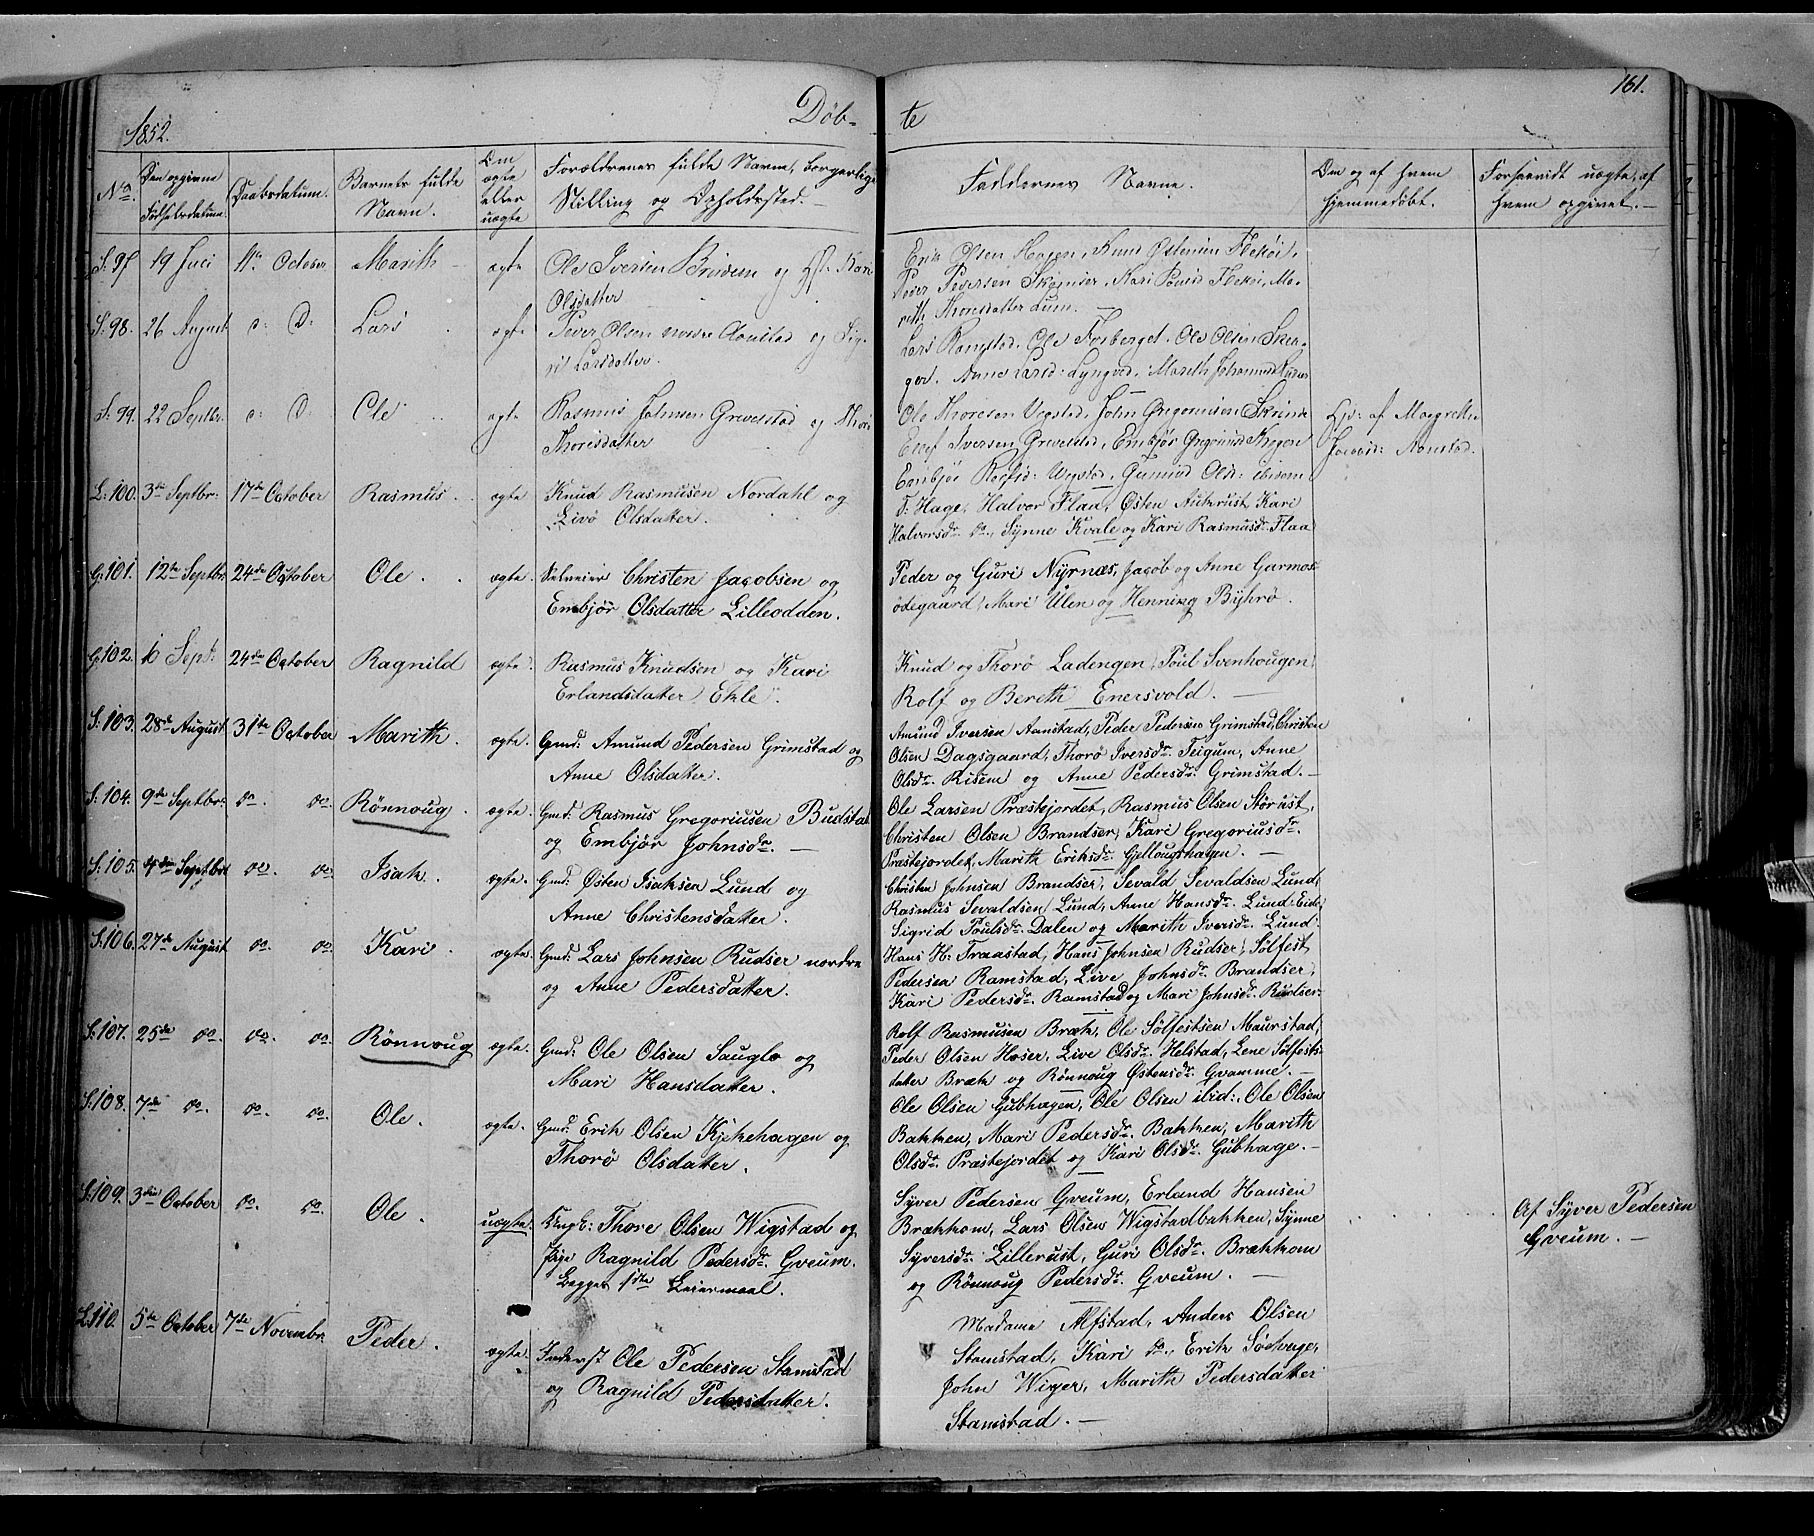 161.
1852.
Döb-
te
No.
Den opgivne
Fødselsdatum.
Daabsdatum.
Barnets fulde
Navn.
Om
ægte
eller
uægte
Forældrenes fulde Navne, borgerlige
Stilling og Opholdssted.
Faddernes Navne.
Om og af hvem
hjemmedøbt.
Forsaavidt uægte, af
hvem opgivet.
S: 97 19 Juli October Marith ægte Ole Iversen og Kari
Olsdatter
Erik Olsen Hagen, Knud
Peder Pedersen Kari
Thoresdatter
S: 98. 26 August o: D: Lars ægte Peder Olsen nordre Aanstad og Sig-
ri Larsdatter.
Lars Ramstad. Ole Ole Olsen
Anne Marith
S: 99. 22 Septbr. o: D: Ole ægte Rasmus Johnsen Grevestad og Thore
Thorisdatter
Ole Thoresen Vigstad, John Gregoriusen
Iversen Grevestad, Embjør
Embjør Gunild Olsd: ibidem
Hj: af Margrethe
Aanstad.
L: 100. 3die Septbr: 17de October Rasmus. ægte Knud Rasmusen Nordahl og
Livö Olsdatter.
T: Hage, Halvor Flaa, Østen Aukrust, Kari
Halvorsdr. do., Synne Kvale og Kari Rasmusdr. Flaa
G: 101. 12te Septbr. 24de October Ole. ægte. Selveier Christen Jacobsen og
Embjør Olsdatter Lilleodden.
Peder og Guri Nyrnæs, Jacob og Anne Garmos
ødegaard, Mari Ulen og Henning Byhrö.
G: 102. 10 Sept: 24de October Ragnild ægte. Rasmus Knudsen og Kari
Erlandsdatter Ekle.
Knud og Thorö Ladengen, Poul Svenhougen,
Rolf og Bereth Enersvold. —
S: 103. 28de August 31te October Marith. ægte. Gmd: Amund Pedersen Grimstad og
Anne Olsdatter.
Amund Iversen Aanstad, Peder Pedersen Grimstad, Christen
Olsen Dagsgaard, Thorö Iversdr. Teigum, Anne
Olsdr. Risem og Anne Pedersdr. Grimstad. —
S: 104. 9de Septbr: do. do. Rönnoug. ægte. Gmd: Rasmus Gregoriusen Budstad
og Embjør Johnsdr. —
Ole Larsen Præstejordet, Rasmus Olsen Storust,
Christen Olsen Brandser, Kari Gregoriusdr.
Præstejordet, Marith Eriksdr. Gjellougshagen. —
S: 105. 4de Septbr do. do. Isak. ægte. Gmd: Østen Isaksen Lund og
Anne Christensdatter.
Christen Johnsen Brandser, Sevald Sevaldsen Lund,
Rasmus Sevaldsen Lund, Anne Hansdr. Lund-Eide,
Sigrid Poulsdr. Dalen og Marith Iversdr. Lund.
S: 106. 27de August do. do. Kari. ægte. Gmd: Lars Johnsen Rudser nordre
og Anne Pedersdatter.
Hans H: Fraastad, Hans Johnsen Rudser, Sølfest
Pedersen Ramstad, Live Johnsdr. Brandser,
Kari Pedersdr. Ramstad og Mari Johnsdr. Rudser
S: 107. 25de do. do. do. Rönnoug ægte. Gmd: Ole Olsen Sauglo og
Mari Hansdatter.
Rolf Rasmusen Bræk, Ole Sølfestsen Maurstad,
Peder Olsen Hoser, Live Olsdr. Helstad, Lene Sølfests-
datter Bræk og Rönnoug Østensdr. Qvamme. —
S: 108. 7de do. do. do. Ole. ægte. Gmd: Erik Olsen Kjækehagen og
Thorö Olsdatter.
Ole Olsen Gubhagen, Ole Olsen ibid:, Ole Olsen
Bakken, Mari Pedersdr. Bakken, Marith
Olsdr. Præstejordet og Kari Olsdr. Gubhage. —
S: 109. 3die October do. do. Ole. uægte. Ungk: Thore Olsen Wigstad og
Pige Ragnild Pedersdr. Qveum.
Begges 1ste Leiermaal.
Syver Pedersen Qveum, Erland Hansen
Brækkom, Lars Olsen Wigstadbakken, Synne
Syversdr. Lillerust, Guri Olsdr. Brækkom
og Rönnoug Pedersdr. Qveum. —
Af Syver Pedersen
Qveum. —
L: 110. 5te October 7de Novembr. Peder. ægte. Inderst Ole Pedersen Stamstad
og Ragnild Pedersdatter.
Madame Alfstad, Anders Olsen
Stamstad, Kari do., Erik Sødvege,
John Wiger, Marith Pedersdatter
Stamstad. —